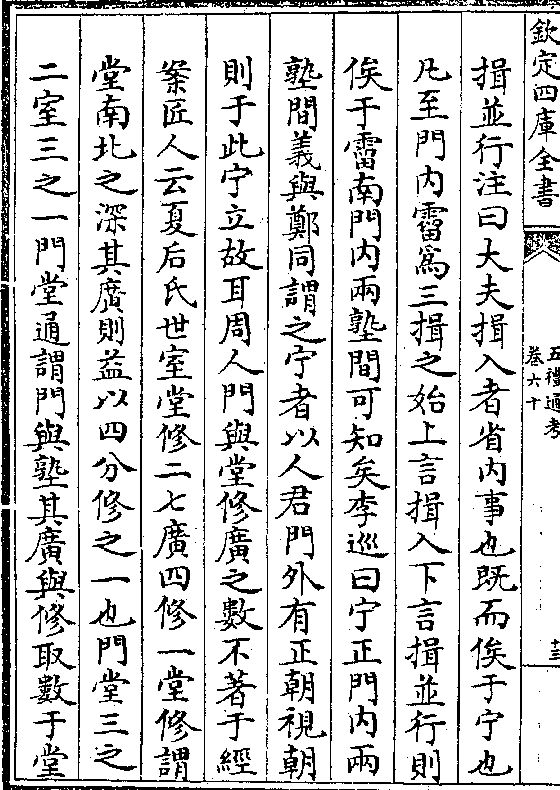 欽定四庫全書
五禮通考
卷六十
十三
揖並行注曰大夫揖入者省内事也既而俟于宁也
凡至門内霤為三揖之始上言揖入下言揖並行則
俟于霤南門内兩塾間可知矣李巡曰宁正門内兩
塾間義與鄭同謂之宁者以人君門外有正朝視朝
則于此宁立故耳周人門與堂修廣之數不著于經
案匠人云夏后氏世室堂修二七廣四修一堂修謂
堂南北之深其廣則益以四分修之一也門堂三之
二室三之一門堂通謂門與塾其廣與修取數于堂